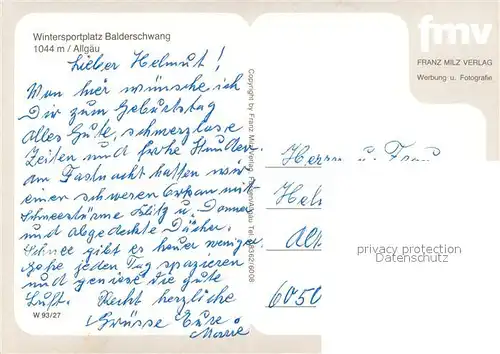 Wintersportplatz Balderschwang
1044 m / Allgäu
Lieber Helmut!
Von hier wünsche ich
Dir zum Geburtstag
alles Gute, schmerzlose
Zeiten und frohe Stunden.
Am Fastnacht hatten wir
einen schweren Orkan mit
Schneestürme Blitz u. Donner
und abgedeckte Dächer.
Schnee gibt es heuer weniger.
Gehe jeden Tag spazieren
und geniese die gute
Luft. Recht herzliche
Grüsse Eure
Marie
W 93/27
Copyright by Franz Milz Verlag
fmv
FRANZ MILZ VERLAG
Werbung u. Fotografie
Herrn u. Frau
Hel
Alt
6050
privacy protection
Datenschutz